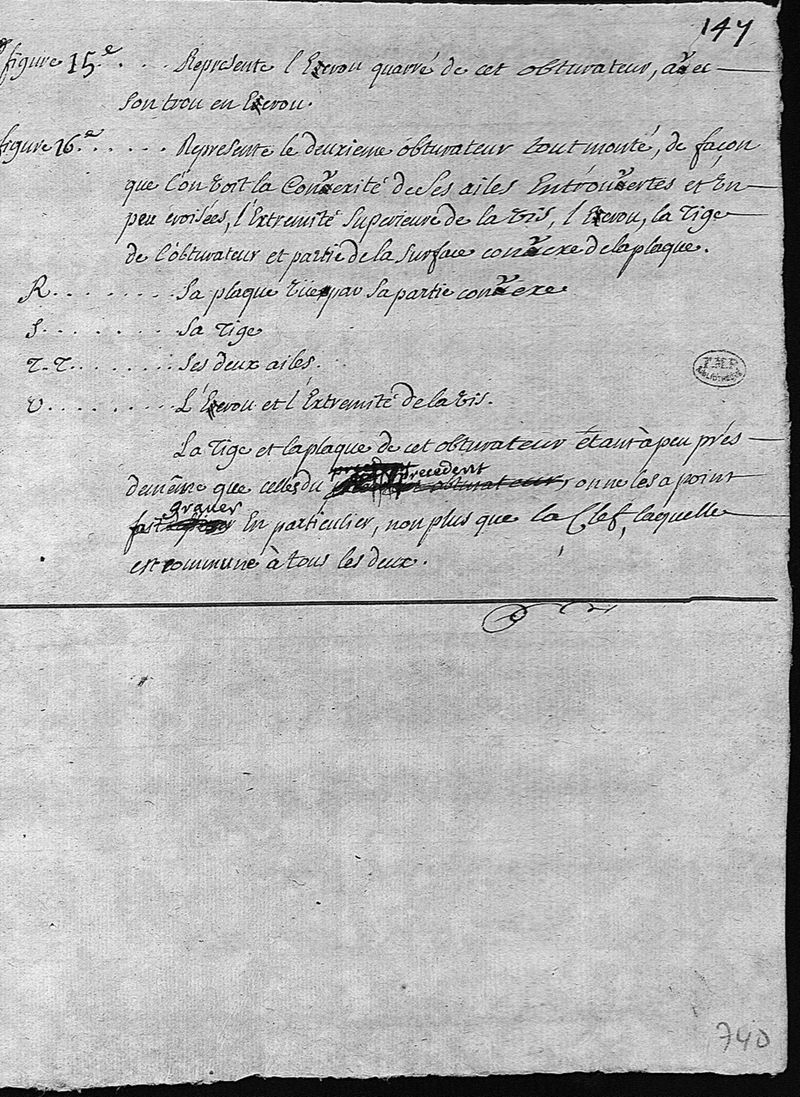 147
figure 15.e . . . Represente l'Ecrou quarré de cet obturateur, avec
son trou en Ecrou.
figure 16.e . . . . . . Represente le deuxieme obturateur tout monté, de façon
que l'on voit la Convexité de Ses ailes Entrouvertes et En
peu croisées, l'Extremité Superieure de la vis, l'Ecrou, la Tige
de l'obturateur et partie de la surface convexe de la plaque.
R . . . . . . . . Sa plaque vue par Sa partie convexe
S . . . . . . . . Sa Tige
T. T . . . . . . . Ses deux ailes.
V . . . . . . . . L'Ecrou et l'Extremité de la vis.
La Tige et la plaque de cet obturateur êtant à peu prés
precedent
de même que celles du obturateur, on ne les a point
graver
fait En particulier, non plus que la Clef, laquelle
est commune à tous les deux.
BIBLIOTHEQUE
740